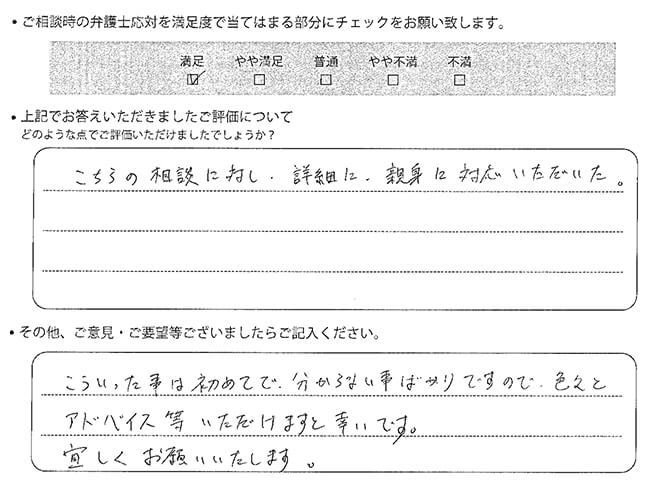 • ご相談時の弁護士応対を満足度で当てはまる部分にチェックをお願い致します。
満足 やや満足 普通 やや不満 不満
☑ □ □ □ □
• 上記でお答えいただきましたご評価について
どのような点でご評価いただけましたでしょうか？
こちらの相談に対し、詳細に、親身に対応いただいた。
• その他、ご意見・ご要望等ございましたらご記入ください。
こういった事は初めてで、分からない事ばかりですので、色々と
アドバイス等いただけますと幸いです。
宜しくお願いいたします。